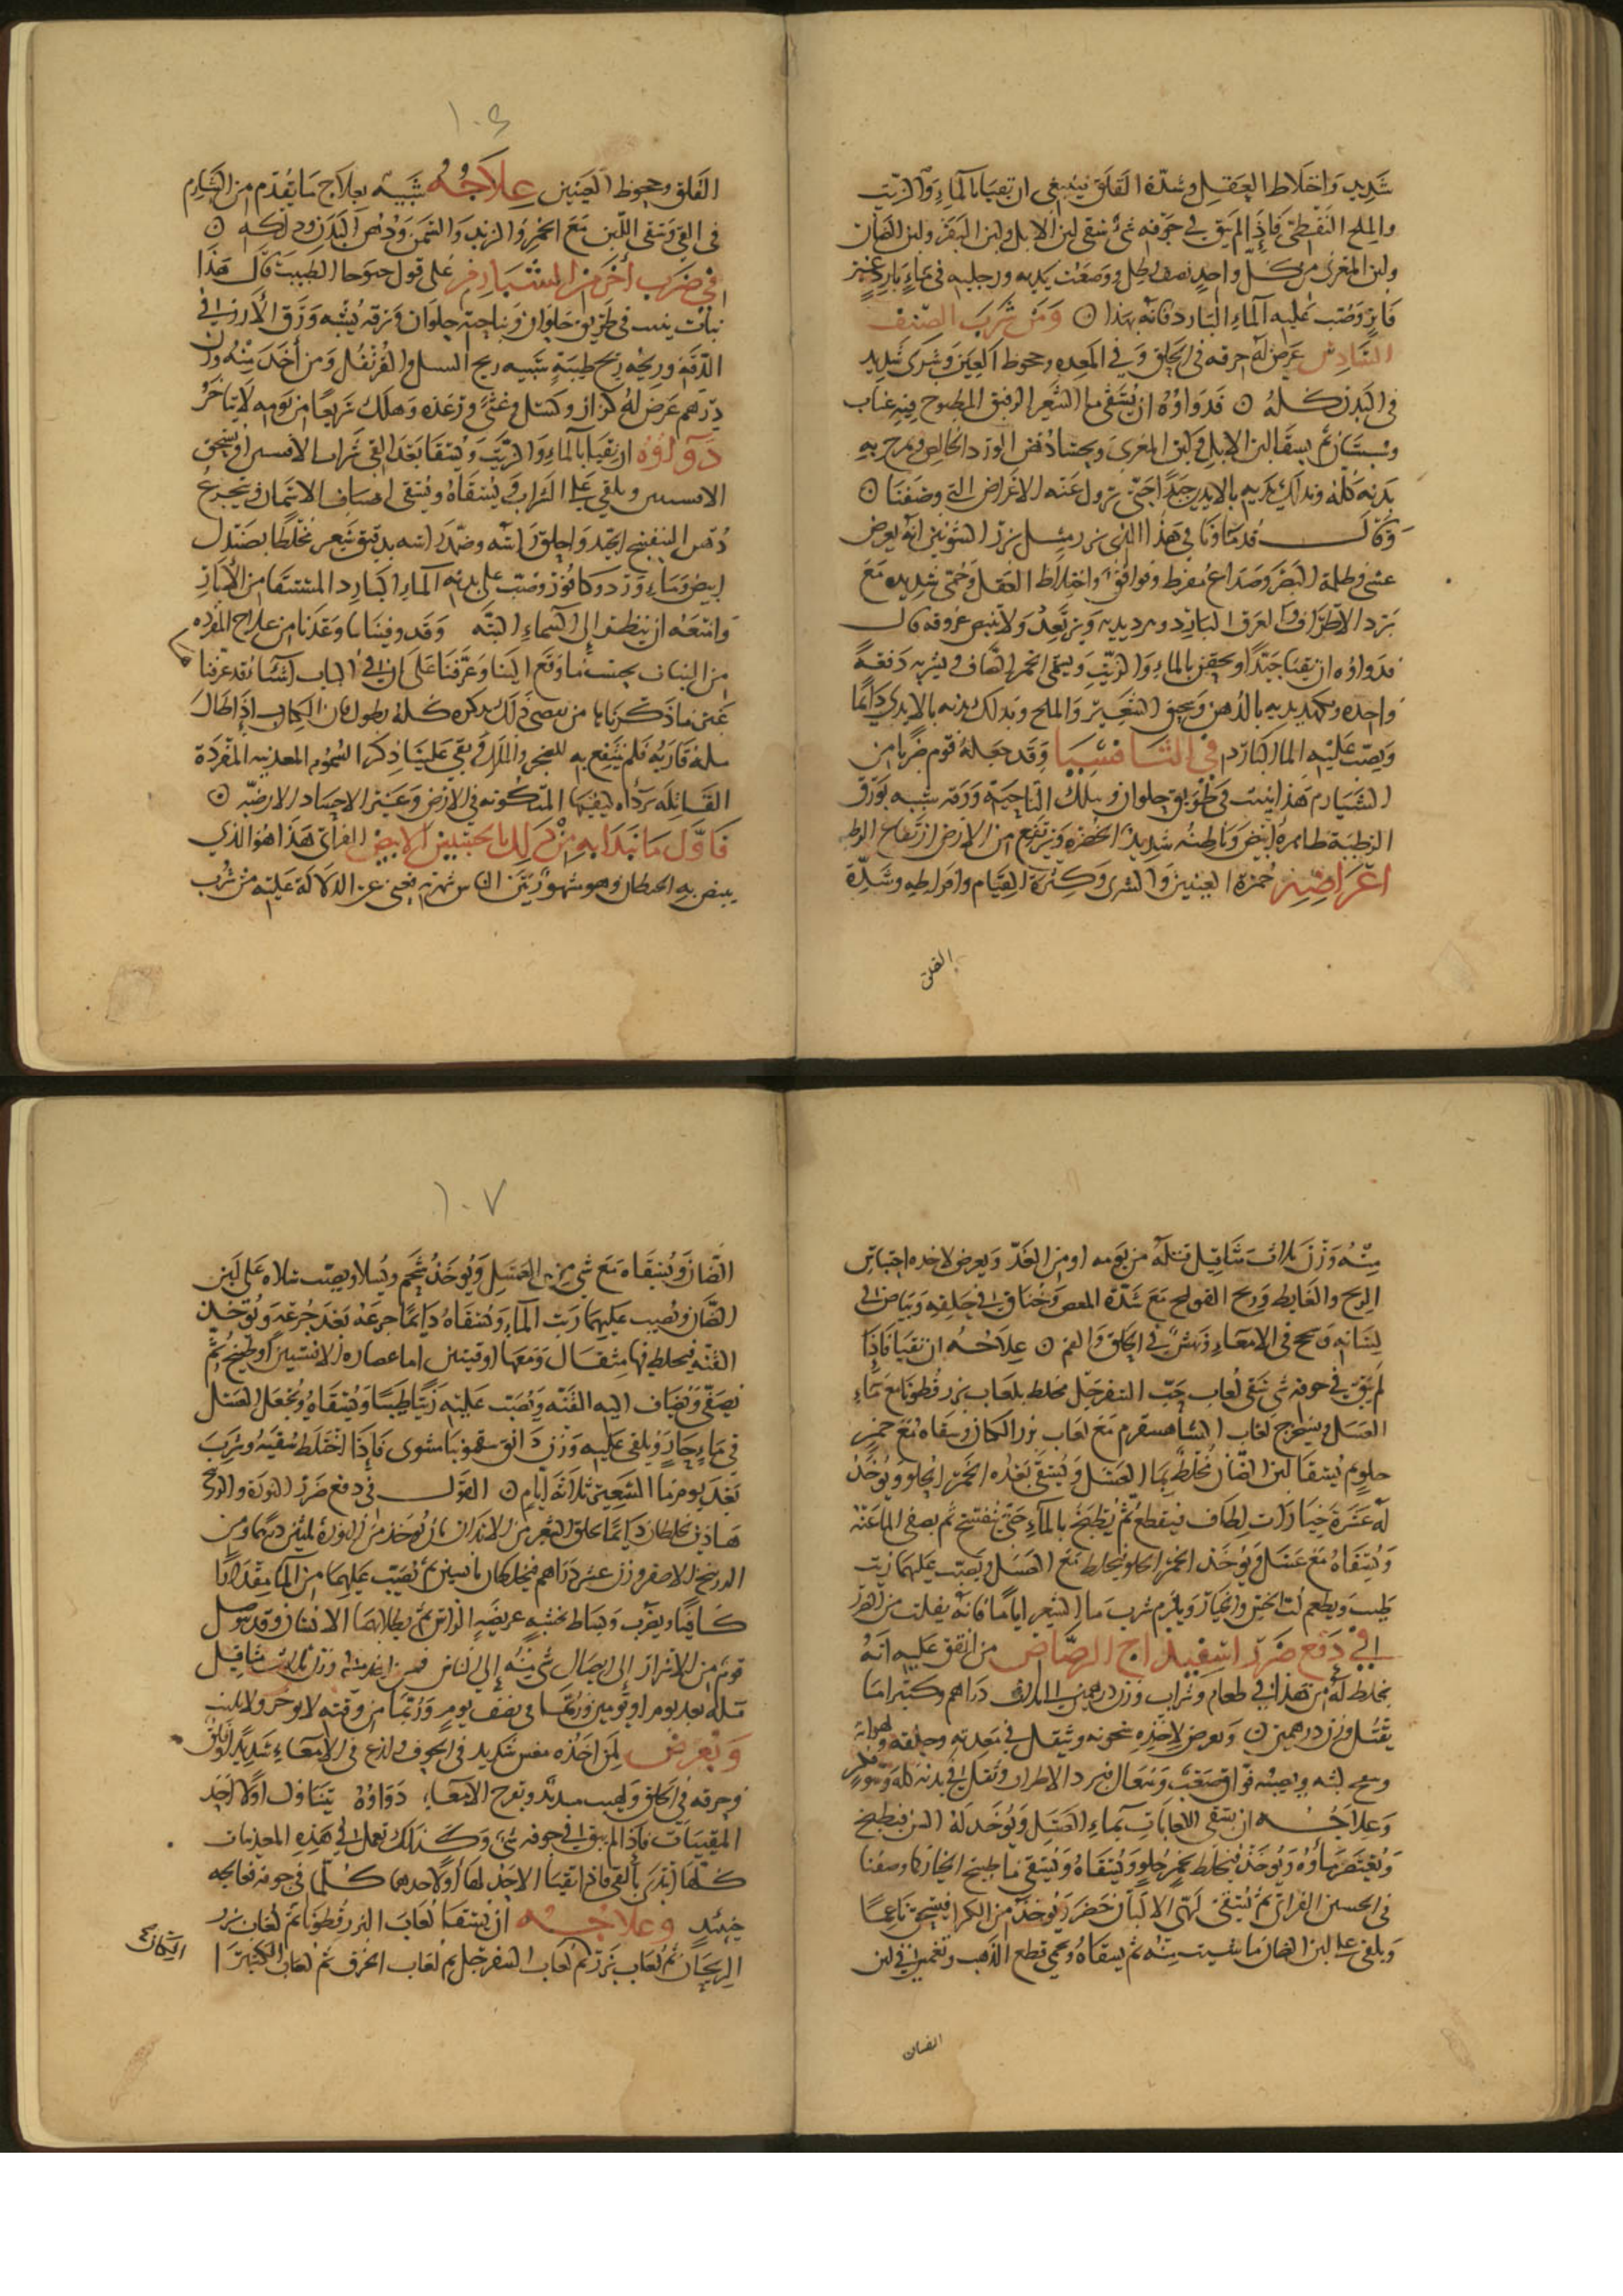 شديد واختلاط العقل وشدة القلق فينبغي ان يتقيا بالماء والزيت
والملح النفطي فاذا لم يبق في جوفه شئ سقي لبن الابل ولبن البقر ولبن الضان
ولبن المعزى من كل واحد نصف رطل ووضعت يديه ورجليه في ماء بارد غير
فاتر وصب عليه الماء البارد فانه بهذا ومن شرب الصنف
السادس عرض له حرقه في الحلق وفي المعده وجحوظ العين وشرى شديد
في البدن كله فدواؤه ان يسقى ما الشعير الرقيق المطبوخ فيه عناب
وسبستان ثم يسقا لبن الابل ولبن المعزى ويحسا دهن الورد الخالص ويمرخ به
بدنه كله وتدلك يديه بالايدي جيدا حتى تزول عنه الاعراض التي وصفنا
وقال قدماونا في هذا الذي بزره مثل بزر الشونيز انه يعرض
غشي وظلمة البصر وصداع مفرط وفواق واختلاط العقل وحمى شديده مع
برد الاطراف والعرق البارد ويرتعد ولا تنبض عروقه قال
فدواوه ان يتقيا جيدا ويحقن بالماء والزيت ويسقى الخمر الصافي يشربه دفعة
واحده وتكمد يديه بالدهن وبدلك بدنه بالايدي دايما
ويصب عليه الما البارد في التافسيا وقد جعله قوم ضربا من
الشبارم هذا ينبت في طريق حلوان وتلك الناحية ورقه شبيه بورق
الرطبة ظاهره ابيض وباطنه شديد الخضرة ويرتفع من الارض ارتفاع الرطبه
اعراضه حمرة العينين والشرى وكثرة القيام وافراطه وشدة
القلق
١٠٤
القلق وجحوظ العينين علاجه شبيه بعلاج ما يقدم من الشبارم
في القي وسقي اللبن مع الخمر والزبد والسمن ودهن البدن ودلكه
في ضرب اخر من الشبارم على قول حنوحا الطبيب قال هذا
نبات ينبت في طريق حلوان وناحية حلوان ورقه يشبه ورق الارز في
الدقة وريحه ريح طيبة شبيه ريح السسل والقرنفل ومن اخذ منه وزن
درهم عرض له كزاز وكسل وغشي ورعده وهلك سريعا من يومه لا يتاخر
دواوه ان يتقيا بالماء والزيت ويسقا بعد القي شراب الافسنتين او يسحق
الافسنتين ويلقى على الشراب ويسقاه ويسقى اصناف الادهان ويتجرع
دهن البنفسج الجيد واحلق راسه وضمد راسه بدقيق شعير مخلطا بصندل
ابيض وماء ورد وكافور وصب على بدنه الماء البارد المستقا من الابار
وامنعه ان ينظر الى السماء البته وقد وفينا بما وعدنا من علاج المفرده
من النبات بحسب ما وقع الينا وعرفنا على ان في الباب اشيا قد عرفنا
عن ما ذكرنا يا من نبصي ذلك بذكره كله يطول فان الكتاب اذا طال
مله قاريه فلم ينتفع به للضجر والملل وبقي علينا ذكر السموم المعدنيه المفردة
القاتله برداه كيفيتها المتكونه في الارض وغير الاجساد الارضيه
فاول ما نبدا به من ذلك بالجبسين الابيض الفراتي هذا هو الذي
يبيض به الحيطان وهو مشهور بين الناس شهرته تغني عن الدلالة عليه من شرب
منه وزن ثلاث مثاقيل قتله من يومه او من الغد ويعرض لاخده احتباس
الريح والغايط وريح القولنج مع شدة المغص وخناق في حلقه وبياض في
لسانه وسحج في الامعاء في الحلق والفم علاجه ان يتقيا فاذا
لم يبق في جوفه شي سقي لعاب حب السفرجل مخلط بلعاب بزر قطونا مع ماء
العسل ويستخرج لعاب الشاهسفرم مع لعاب بزر الكتان وسقاه مع خمر
حلو ثم يسقا لبن الضان مخلط بما العسل ويسقى بعده الخمر الحلو ويوخذ
له عشرة خيارات لطاف فيقطع ثم يطبخ بالماء حتى يتفسخ ثم يصفى الما عنه
ويسقاه مع عسل ويوخذ الخمر الحلو فيخلط مع العسل ويصب عليهما زيت
طيب ويطعم لب الخس والخيار ويلزم شرب ما الشعير اياما فانه يفلت من الضرر
في دفع ضرر اسفيداج الرصاص من اتفق عليه انه
يخلط له من هذا في طعام وشراب وزن درهمين الى ثلث دراهم وكثيرا ما
يقتل وزن درهمين ويعرض لاخذه خشونه وثقل في معدته وحلقه ولهواته
لثته ويصيبه فواق صعب وسعال وبرد الاطراف وثقل في بدنه كله
وعلاجه ان يسقى اللعابات بماء العسل ويوخذ له التين فيطبخ
ويعتصر ماؤه ويوخذ فيخلط بخمر حلو ويسقاه ويسقى ما طبيخ الخيار كما وصفنا
في الجبسين الفراتي ثم يسقى من الالبان
ويلقى على لبن الضان ما شيت منه ثم يسقاه ويحمى قطع الذهب وتغمس في لبن
الضان
١٠٧
الضان ويسقاه مع شي من العسل ويوخذ شحم ويسلا ويصب سلاه على لبن
الضان ويصب عليهما ربث الماء ويسقاه دايما جرعه بعد جرعه وتوخذ
القنه فيخلط فيها مثقال ومعها اوقيتين اما عصاره الافسنتين او طبيخ ثم
يصفى ويضاف اليه القنه ويصب عليه زيتا طيبا ويسقاه ويجعل العسل
في ماء حار ويلقى عليه وزن دانق سقمونيا مشوى فاذا اختلط سقيه وشرب
بعد يومه ما الشعير ثلاثة ايام القول في دفع ضرر النورة والزرنيخ
هاذين يخلطان دايما لحلق الشعر من الابدان بان يوخذ من النورة ثلثين درهما ومن
الزرنيخ الاصفر وزن عشر دراهم فيخلطان ثم يصب عليهما من الما مقدارا
كافيا ويضرب ويساط بخشبة عريضة الراس ثم يطلا بها الانسان وقد توصل
قوم من الاشرار الى ايصال شي منه الى الناس فمن اخذ منه وزن ثلاث مثاقيل
قتله بعد يوم او يومين وربما في نصف يوم وربما من وقته لا يوخر ولا يلبث
ويعرض لمن اخذه مغس شديد في الجوف ولذع في الامعاء شديد وقلق
وحرقه في الحلق ولهيب شديد وتقرح الامعا دواوه يتناول اولا اخذ
المقييات فاذا لم يبق في جوفه شي وكذلك تعمل في هذه المعدنيات
كلها تبتدي بالقي فاذا تقيا الاخذ لها اولا كلما في جوفه فعالجه
حينيذ وعلاجه ان يسقا لعاب البزر قطونا ثم لعاب بزر
الريحان ثم لعاب بزر ثم لعاب السفرجل ثم لعاب الخرف ثم لعاب الكثيرا
الكتان